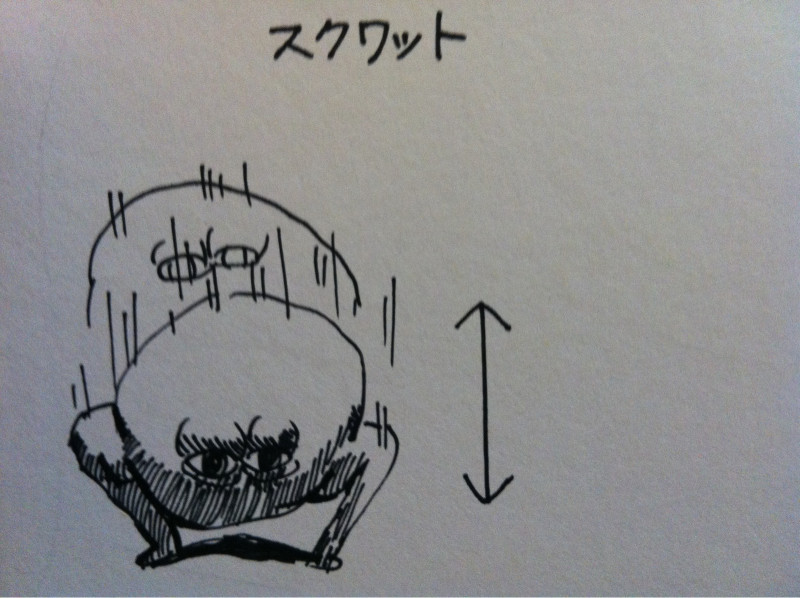 スクワット